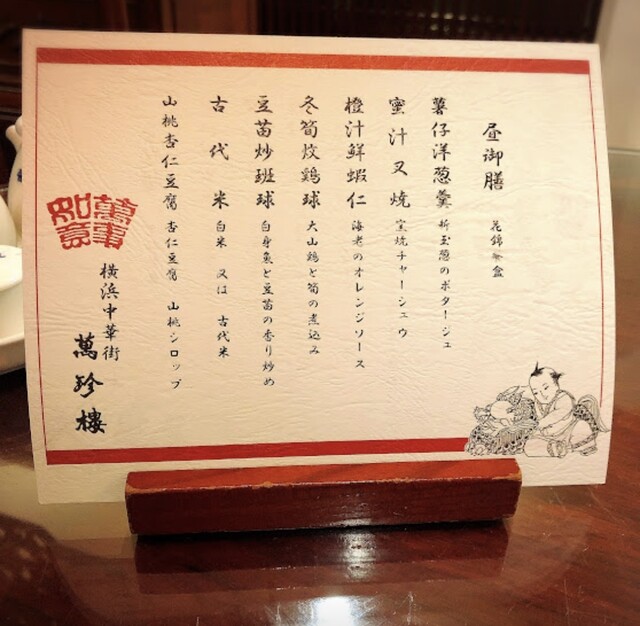 昼御膳 花錦 盒
薯仔洋葱羹 新玉葱のポタージュ
蜜汁叉焼 窯焼チャーシュウ
橙汁鮮蝦仁 海老のオレンジソース
冬筍炆鶏球 大山鶏と筍の煮込み
豆苗炒斑球 白身魚と豆苗の香り炒め
古代米 白米 又は 古代米
山桃杏仁豆腐 杏仁豆腐 山桃シロップ
萬事如意
横浜中華街
萬珍樓